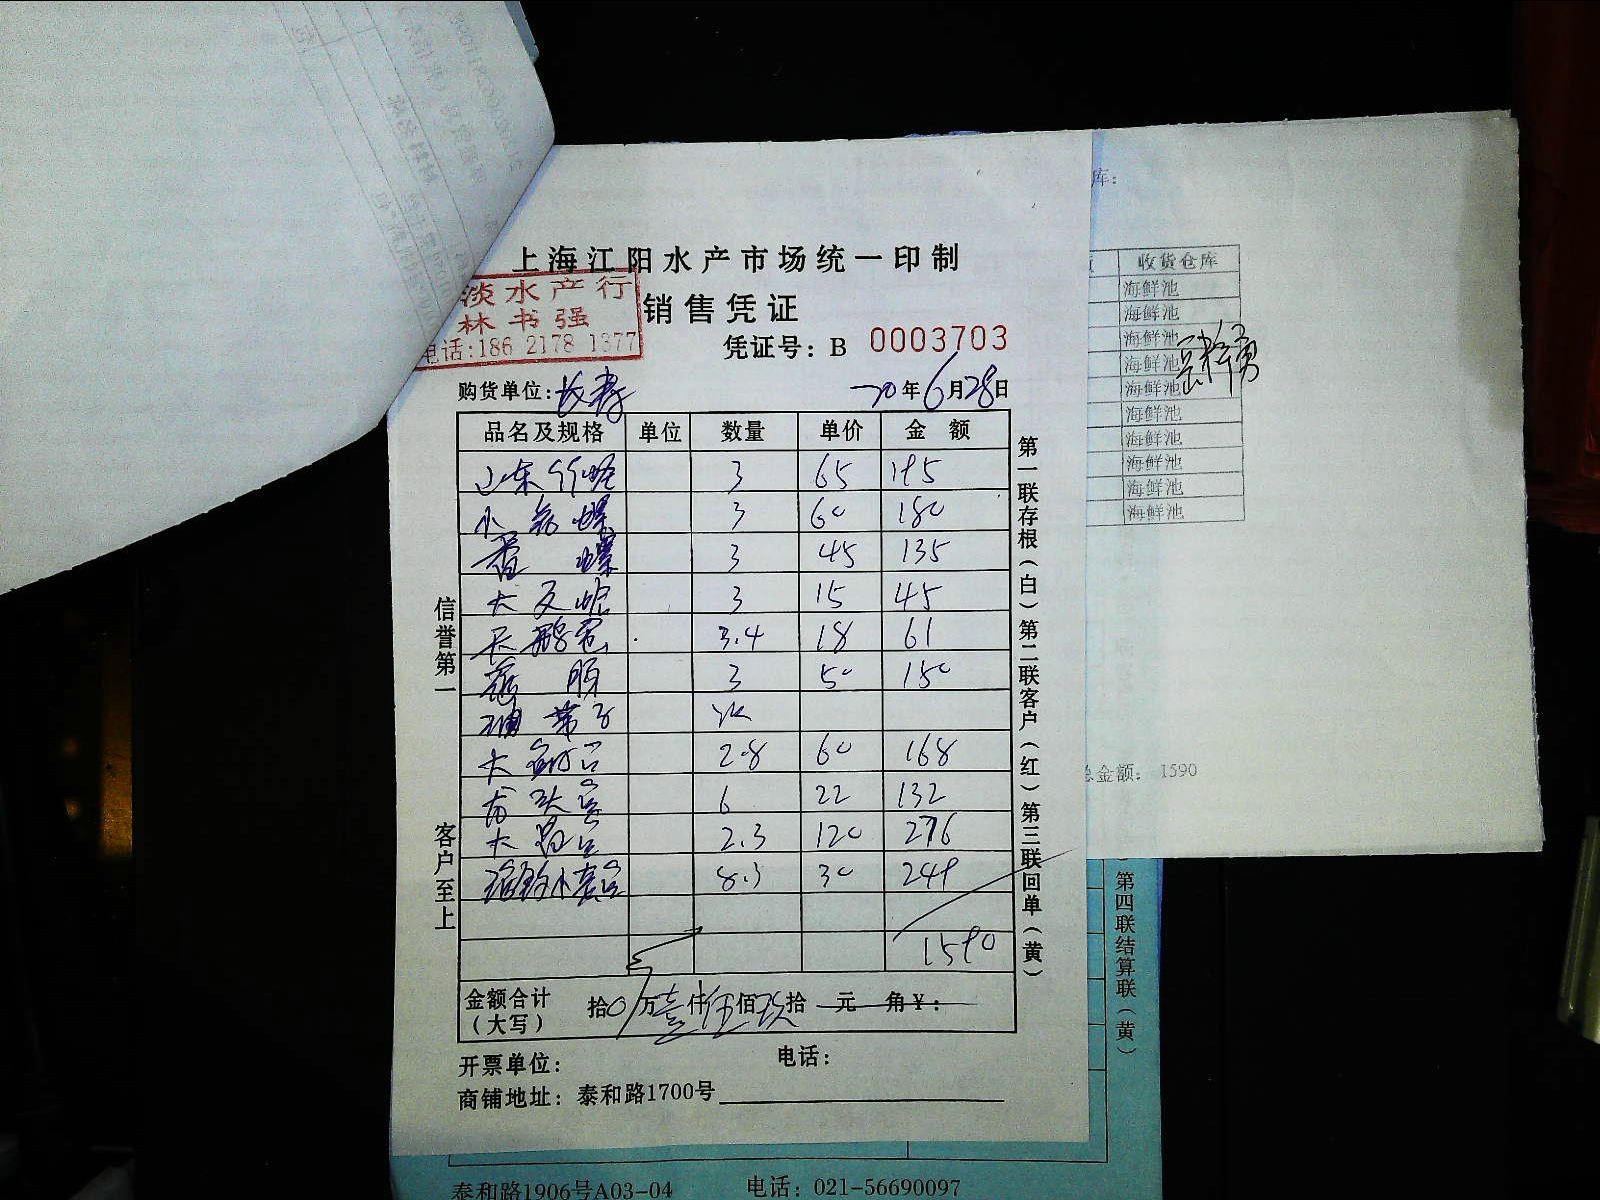 上海江阳水产市场统一印制
淡水产行
林书强
电话:186 2178 1377
销售凭证
凭证号: B 0003703
购货单位:
20年6月28日
品名及规格 单位 数量 单价 金额
山东 3 65 195
小 螺 3 60 180
香螺 3 45 135
大 3 15 45
3.4 18 61
3 50 150
带子
大 2.8 60 168
龙头 6 22 132
大 2.3 120 276
小 8.3 30 249
1590
金额合计 拾0万壹仟伍佰玖拾元角¥:
(大写)
开票单位: 电话:
商铺地址: 泰和路1700号
信誉第一
客户至上
第一联存根(白)第二联客户(红)第三联回单(黄)
库:
收货仓库
海鲜池
海鲜池
海鲜池
海鲜池
海鲜池
海鲜池
海鲜池
海鲜池
海鲜池
海鲜池
总金额: 1590
第四联结算联(黄)
泰和路1906号A03-04 电话: 021-56690097